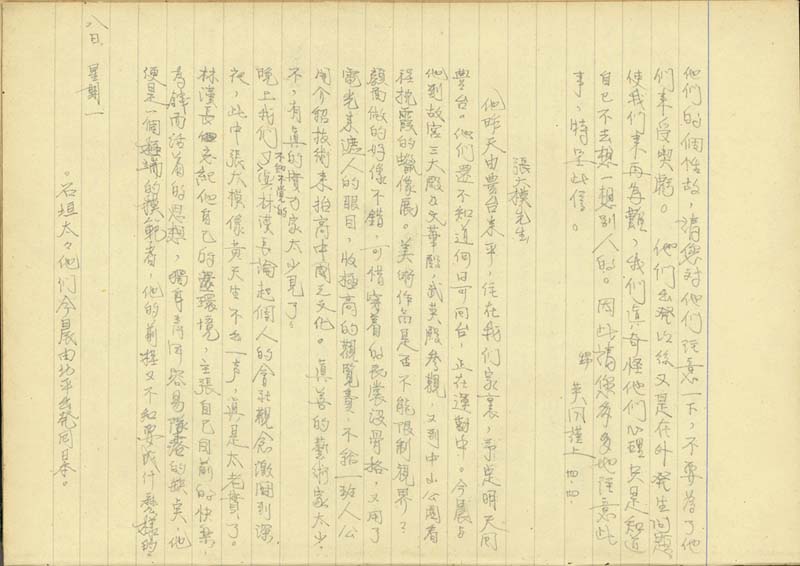 他们的個性故，請您对他们注意一下，不要為了他
们來受與虧。他们出発以後又是在外発生问题
使我们来再為難，我们真奇怪他们心理只是知道
自己不去想一想別人的。因此請您多多地注意此
事，特呈此信。
英同謹上 四.四.
張大模先生
他昨天由豊台来平，住在我们家裏，予定明天囘
豊台。他们還不知道何日可囘台，正在運動中。今晨与
他到故宮三大殿及文華殿，武英殿參觀，又到中山公園看
程挽霞的蠟像展。美術作品是否不能限制視界？
顏面做的好像不錯，可惜穿着的衣裳沒骨格，又用了
電光来遮人的眼目，收極高的觀覽費，不給一班人公
開介紹技術来抬高中國之文化。真善的藝術家太少，
不，有真的實力家太少見了。
晚上我们又不知不覚的与林漢長論起個人的會社觀念激闘到深
夜，此中張大模像黃天生不出一声，真是太老實了。
林漢長忘記他自己的環境，主張自己目前的快樂，
為時而活着的思想，獨身青年容易墜落的缺点，他
便是一個極端的模範者，他的前程又不知要成什麼樣的。
八日 星期一
。石垣太々他们今晨由北平出発囘日本。